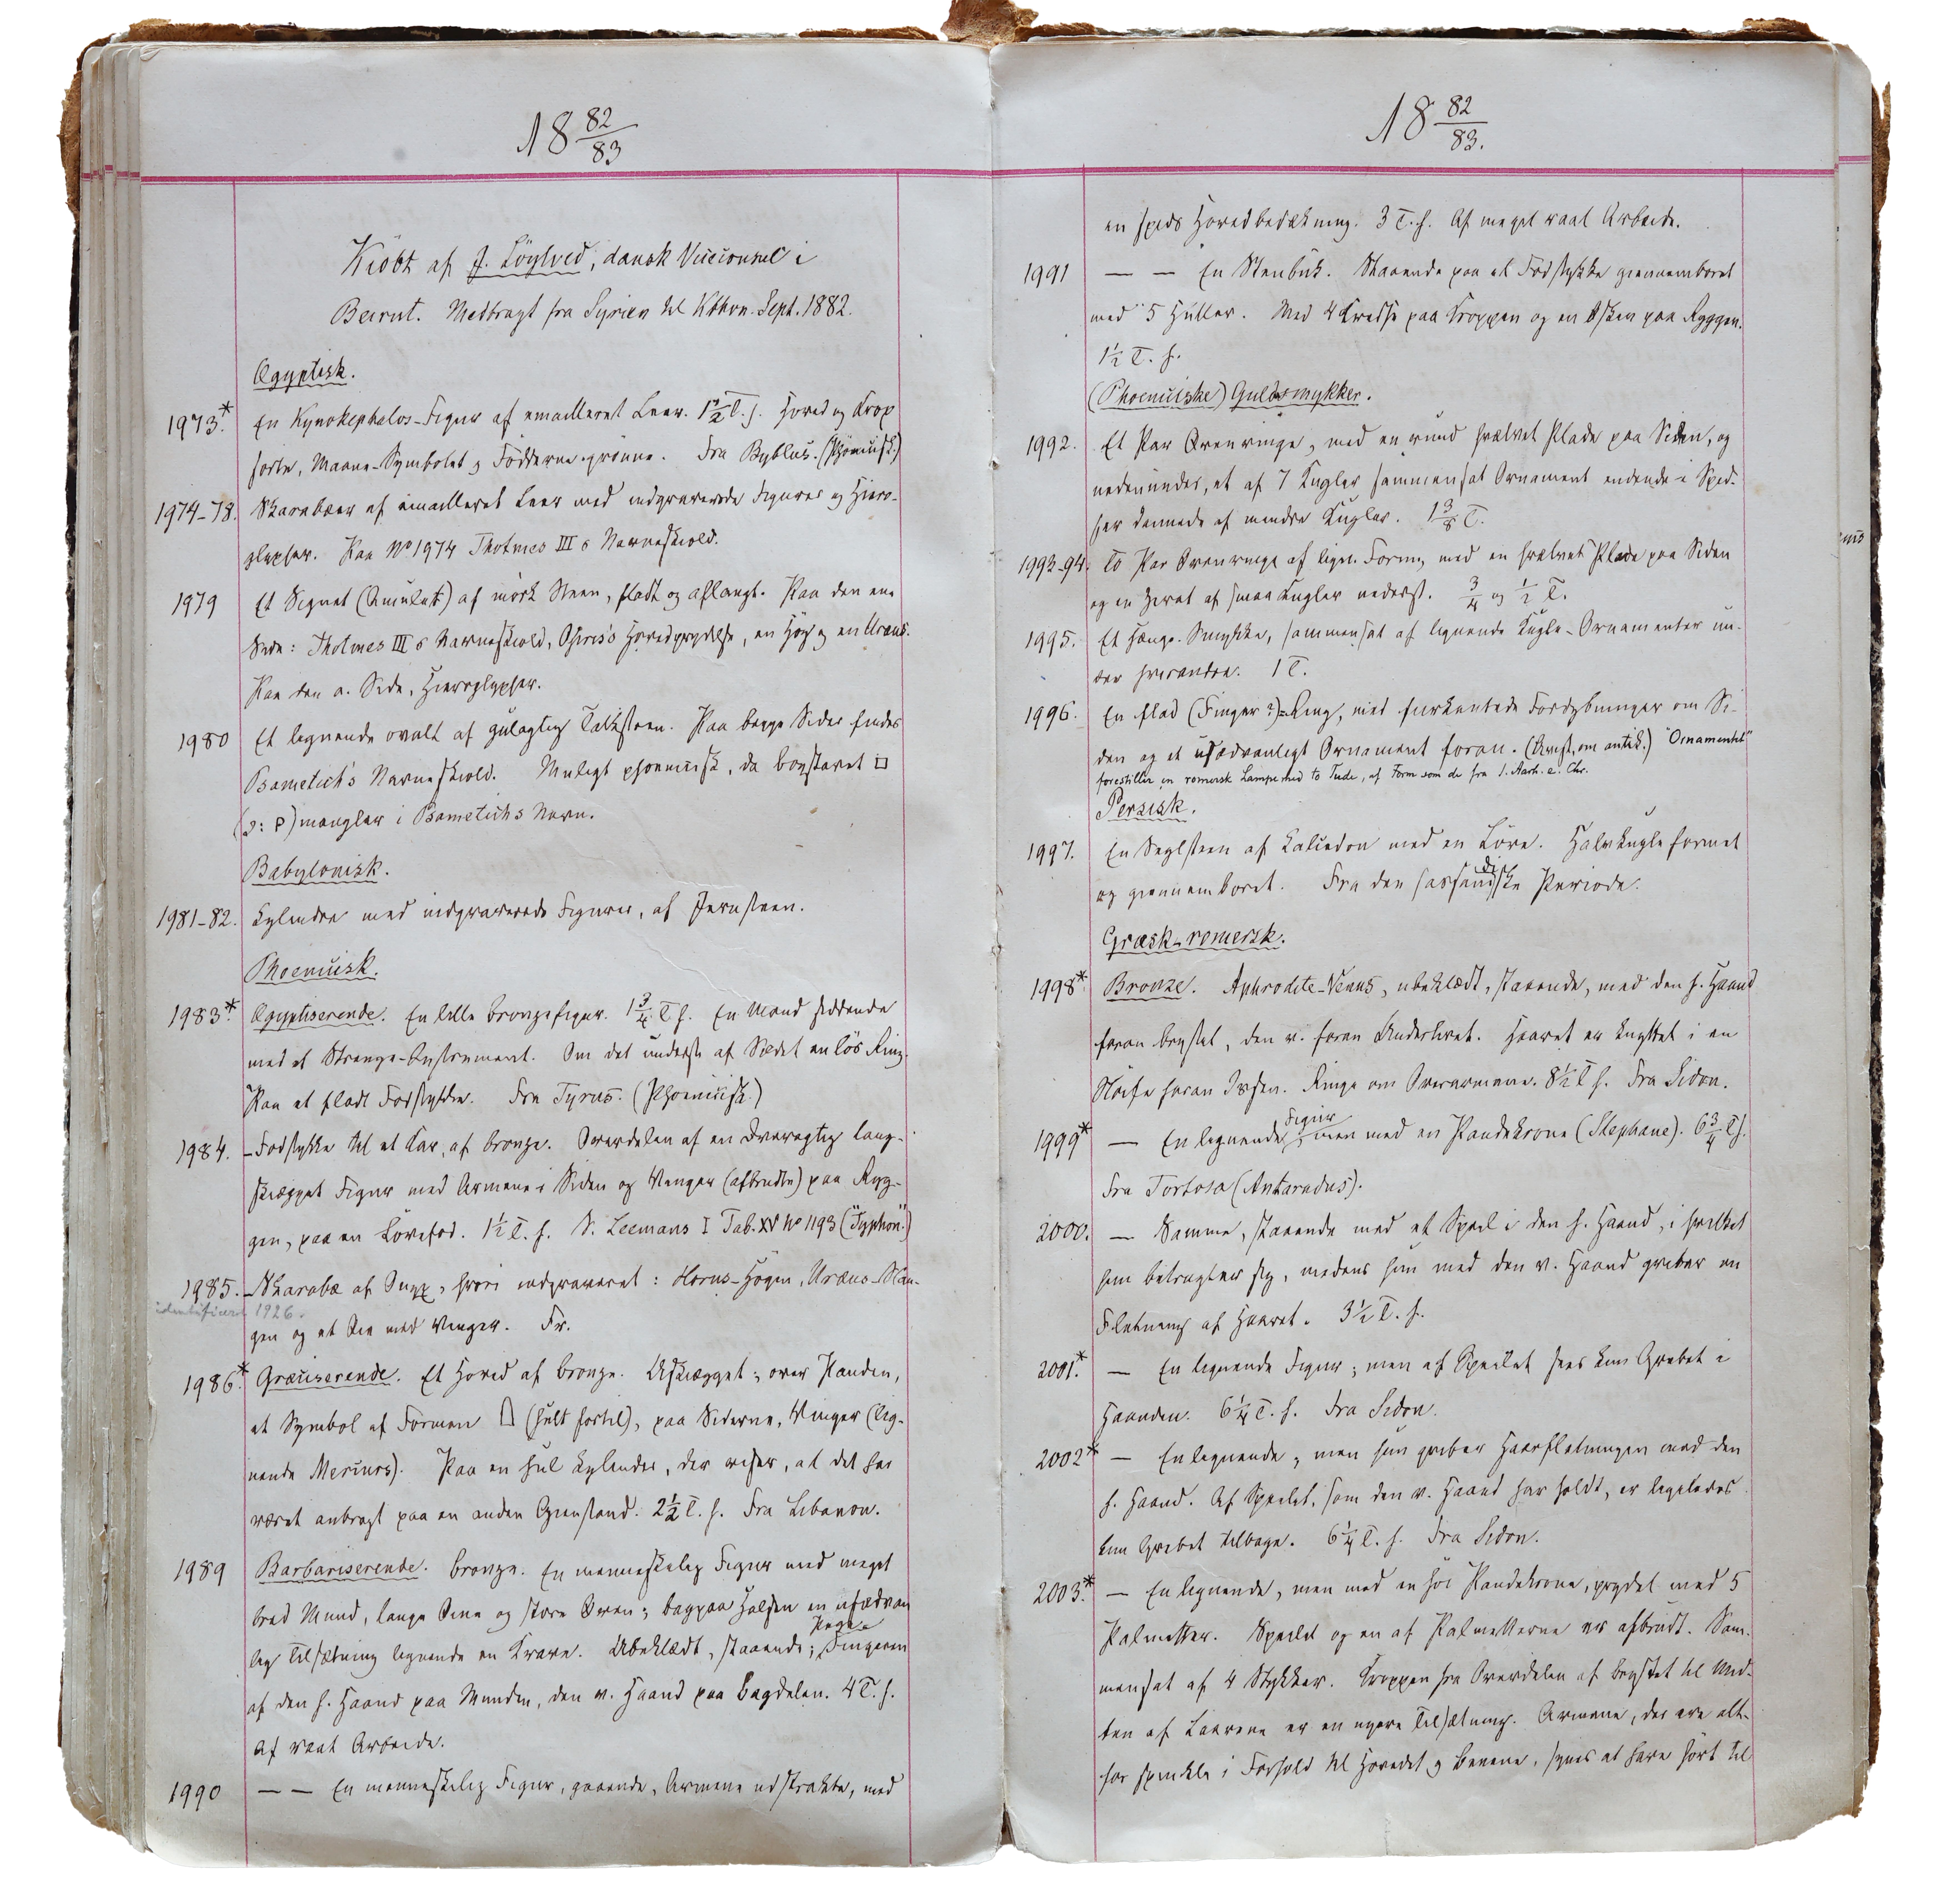 18 82/83
Kiöbt af J. Löytved, dansk Viceconsul i
Beirut. Medbragt fra Syrien til Kbhvn. Sept. 1882.
Ægyptisk.
1973.* En Kynokephalos-Figur af emailleret Leer. 1½ T. h. Hoved og Krop
sorte, Maane-Symbolet og Födderne grönne. Fra Byblus. (Phönicisk)
1974-78. Skarabæer af emailleret Leer med indgraverede Figurer og Hiero-
glypher. Paa No 1974 Thotmes III's Navneskiold.
1979 Et Signet (Amulet) af mörk Steen, fladt og aflangt. Paa den ene
Side: Thotmes III's Navneskiold, Osiris's Hovedprydelse, en Hög og en Uræus.
Paa den a. Side, Hieroglypher.
1980 Et lignende ovalt af gulagtig Talksteen. Paa begge Sider findes
Psametich's Navneskiold. Muligt phoenicisk, da bogstavet □
(ɔ: P) mangler i Psametichs Navn.
Babylonisk.
1981-82. Cylindre med indgraverede Figurer, af Jernsteen.
Phoenicisk.
1983.* Ægyptiserende. En lille bronzefigur. 1¾ T. h. En Mand siddende
med et Strenge-Instrument. Om det underste af Sædet en lös Ring.
Paa et fladt Fodstykke. Fra Tyrus. (Phoenicisk.)
1984. – Fodstykke til et Kar, af bronze. Overdelen af en dværgagtig lang-
skiægget Figur med Armene i Siden og Vinger (afbrudte) paa Ryg-
gen, paa en Lövefod. 1½ T. h. S. Leemans I Tab. XV No 1193 ("Typhon".)
1985. – Skarabæ af Onyx, hvori indgraveret: Horus-Högen, Uræus-Slan-
identificeret 1926.
gen og et Øie med Vinger. Fr.
1986.* Græciserende. Et Hoved af bronze. Uskiægget; over Panden,
et Symbol af Formen (hult fortil), paa Siderne, Vinger (lig-
nende Mercurs). Paa en hul Cylinder, der viser, at det har
været anbragt paa en anden Gienstand. 2½ T. h. Fra Libanon.
1989 Barbariserende. bronze. En menneskelig Figur med meget
bred Mund, lange Øine og store Øren; bagpaa Halsen en usædvan
lig Tilsætning lignende en Krave. Ubeklædt, staaende; Pege-Fingeren
af den h. Haand paa Munden, den v. Haand paa Bagdelen. 4 T. h.
Af raat Arbeide.
1990 – – En menneskelig Figur, gaaende, Armene udstrakte, med
18 82/83.
en spids Hovedbedækning. 3 T. h. Af meget raat Arbeide.
1991 – – En Stenbuk. Staaende paa et Fodstykke giennemboret
med 5 Huller. Med 4 Kredse paa Kroppen og en Øsken paa Ryggen.
1½ T. h.
(Phoeniciske) Guldsmykker.
1992. Et Par Ørenringe, med en rund hvælvet Plade paa Siden, og
nedenunder, et af 7 Kugler sammensat Ornament endende i Spid-
ser dannede af mindre Kugler. 1⅜ T.
1993-94. To Par Ørenringe af lign. Form, med en hvælvet Plade paa Siden
og en Zirat af smaa Kugler nederst. ¾ og ½ T.
1995. Et Hænge-Smykke, sammensat af lignende Kugle-Ornamenter un-
der hverandre. 1 T.
1996. En flad (Finger?)=Ring, med firkantede Fordybninger om Si-
den og et usædvanligt Ornament foran. (Uvist, om antik.) "Ornamentet"
forestiller en romersk Lampe med to Tude, af Form som de fra 1. Aarh. e. Chr.
Persisk.
1997. En Seglsteen af Calcedon med en Löve. Halvkugleformet
og giennemboret. Fra den sassanidiske Periode.
Græsk-romersk.
1998* Bronze. Aphrodite-Venus, ubeklædt, staaende, med den h. Haand
foran brystet, den v. foran Underlivet. Haaret er knyttet i en
Slöife foran Issen. Ringe om Overarmene. 8½ T h. Fra Sidon.
1999* – En lignende Figur, men med en Pandekrone (Stephane). 6¾ T h.
Fra Tortosa (Antaradus).
2000. – Samme, staaende med et Speil i den h. Haand, i hvilket
hun betragter sig, medens hun med den v. Haand griber en
Fletning af Haaret. 3½ T. h.
2001.* – En lignende Figur; men af Speilet sees kun Grebet i
Haanden. 6¼ T. h. Fra Sidon.
2002* – En lignende, men hun griber Haarfletningen med den
h. Haand. Af Speilet, som den v. Haand har holdt, er ligeledes
kun Grebet tilbage. 6¼ T. h. Fra Sidon.
2003.* – En lignende, men med en höi Pandekrone, prydet med 5
Palmetter. Speilet og en af Palmetterne er afbrudt. Sam-
mensat af 4 Stykker. Kroppen fra Overdelen af brystet til Mid-
ten af Laarene er en nyere Tilsætning. Armene, der ere alt-
for spinkle i Forhold til Hovedet og benene, synes at have hört til